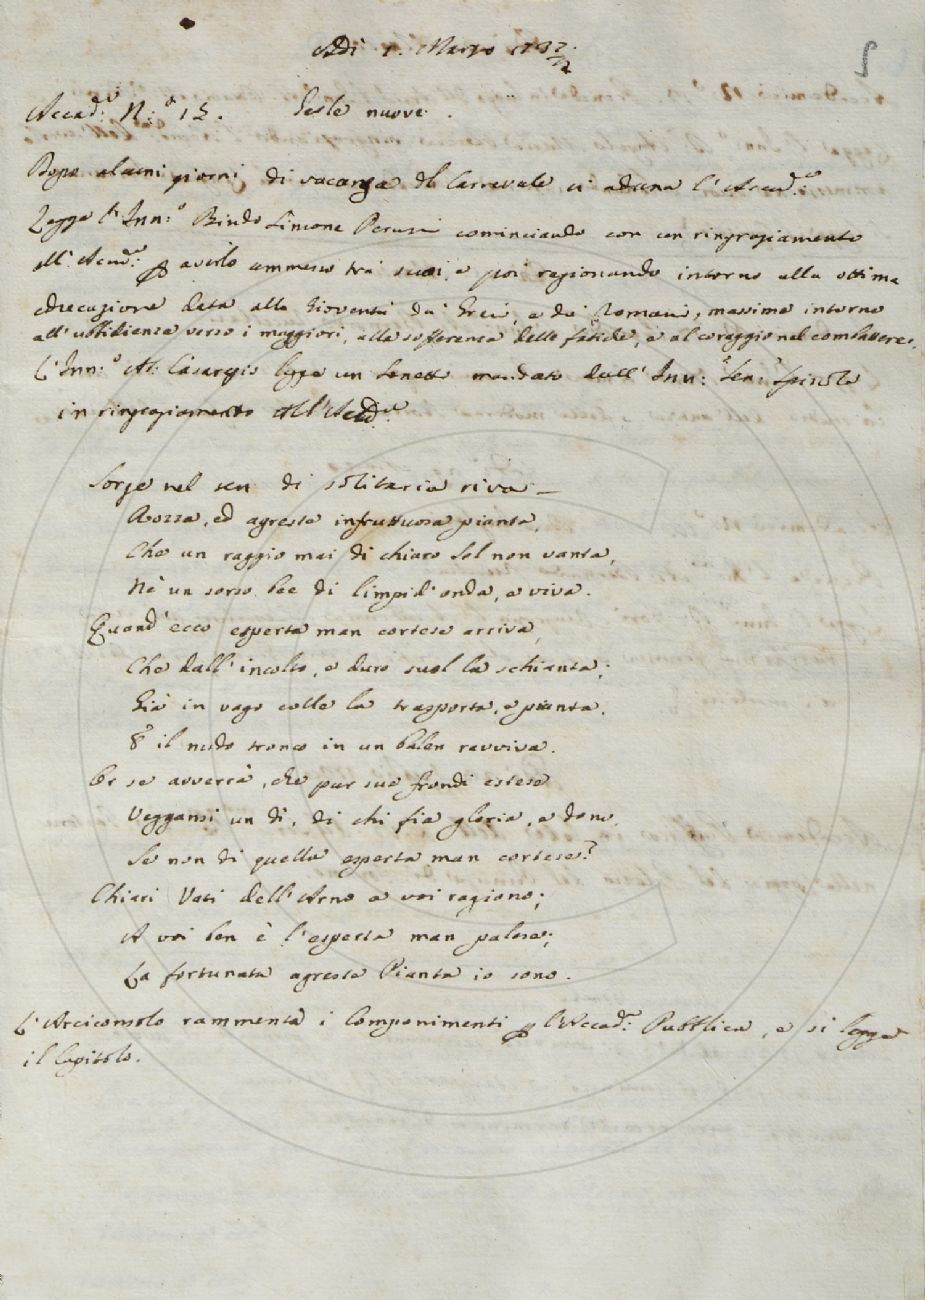 Adì 1. Marzo 1732/
Accad.ª N.º 15. Feste nuove.
Dopo alcuni giorni di vacanza del Carnevale si aduna l'Accad.ª
Legge l'Inn.º Bindo Simone Peruzzi cominciando con un ringraziamento
all'Accad.ª p averlo ammesso tra suoi, e poi ragionando intorno alla ottima
educazione data alla Gioventù da' Greci, e da' Romani, massime intorno
all'ubbidienza verso i maggiori, alla sofferenza delle fatiche, e al coraggio nel combattere.
L'Inn.º Ab. Casaregis legge un Sonetto mandato dall'Inn.º Sen.º Spinola
in ringraziamento All'Accad.ª
Sorge nel sen di solitaria riva
Rozza, ed agreste infruttuosa pianta,
Che un raggio mai di chiaro Sol non vanta,
Nè un sorso bee di limpid'onda, e viva.
Quand'ecco esperta man cortese arriva,
Che dall'incolto, e duro suol la schianta;
Già in vago colle la trasporta, e pianta,
E il nudo tronco in un balen ravviva.
Or se avverrà, che pur sue frondi estese
Veggansi un dì, di chi fia gloria, e dono,
Se non di quella esperta man cortese?
Chiari Vati dell'Arno a voi ragiono;
A voi ben è l'esperta man palese;
La fortunata agreste Pianta io sono.
L'Arciconsolo rammenta i Componimenti p l'Accad.ª Pubblica, e si legge
il Capitolo.